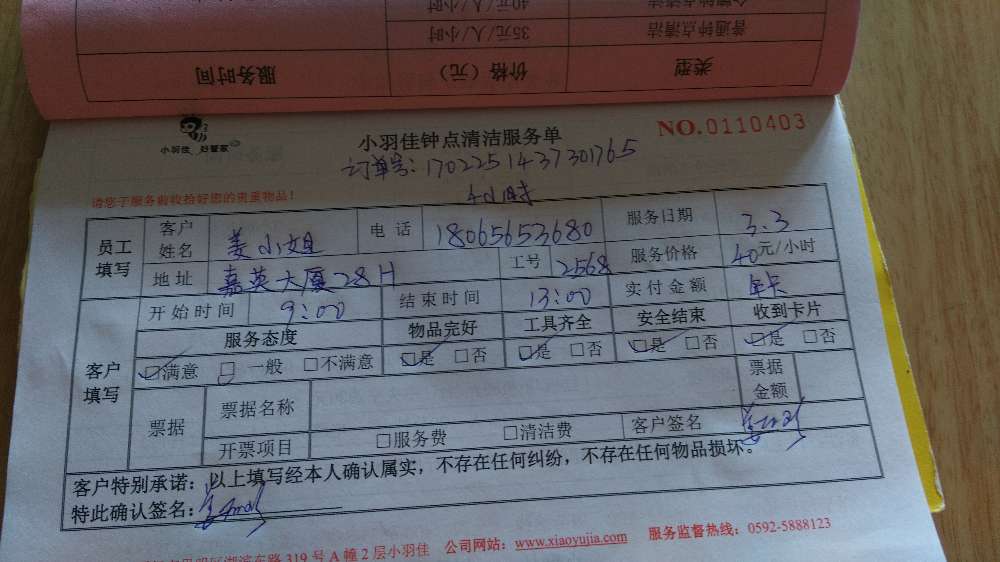 金牌钟点清洁 40元/人/小时
普通钟点清洁 35元/人/小时
类型 价格（元） 服务时间
小羽佳 好管家
小羽佳钟点清洁服务单
NO.0110403
订单号：1702251437301765
4小时
请您于服务前收拾好您的贵重物品！
员工填写 客户姓名 姜小姐 电话 18065653680 服务日期 3.3
地址 嘉英大厦28H 工号 2568 服务价格 40元/小时
客户填写 开始时间 9:00 结束时间 13:00 实付金额 年卡
服务态度 物品完好 工具齐全 安全结束 收到卡片
☑满意 □一般 □不满意 ☑是 □否 ☑是 □否 ☑是 □否 ☑是 □否
票据 票据名称 票据金额
开票项目 □服务费 □清洁费 客户签名
客户特别承诺：以上填写经本人确认属实，不存在任何纠纷，不存在任何物品损坏。
特此确认签名：
明区湖滨东路319号A幢2层小羽佳 公司网站：www.xiaoyujia.com 服务监督热线：0592-5888123